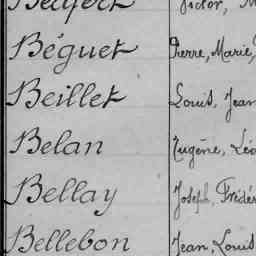 Béguet Pierre, Marie,
Beillet Louis, Jean
Belan Eugène, Léo
Bellay Joseph, Frédér
Bellebon Jean, Louis